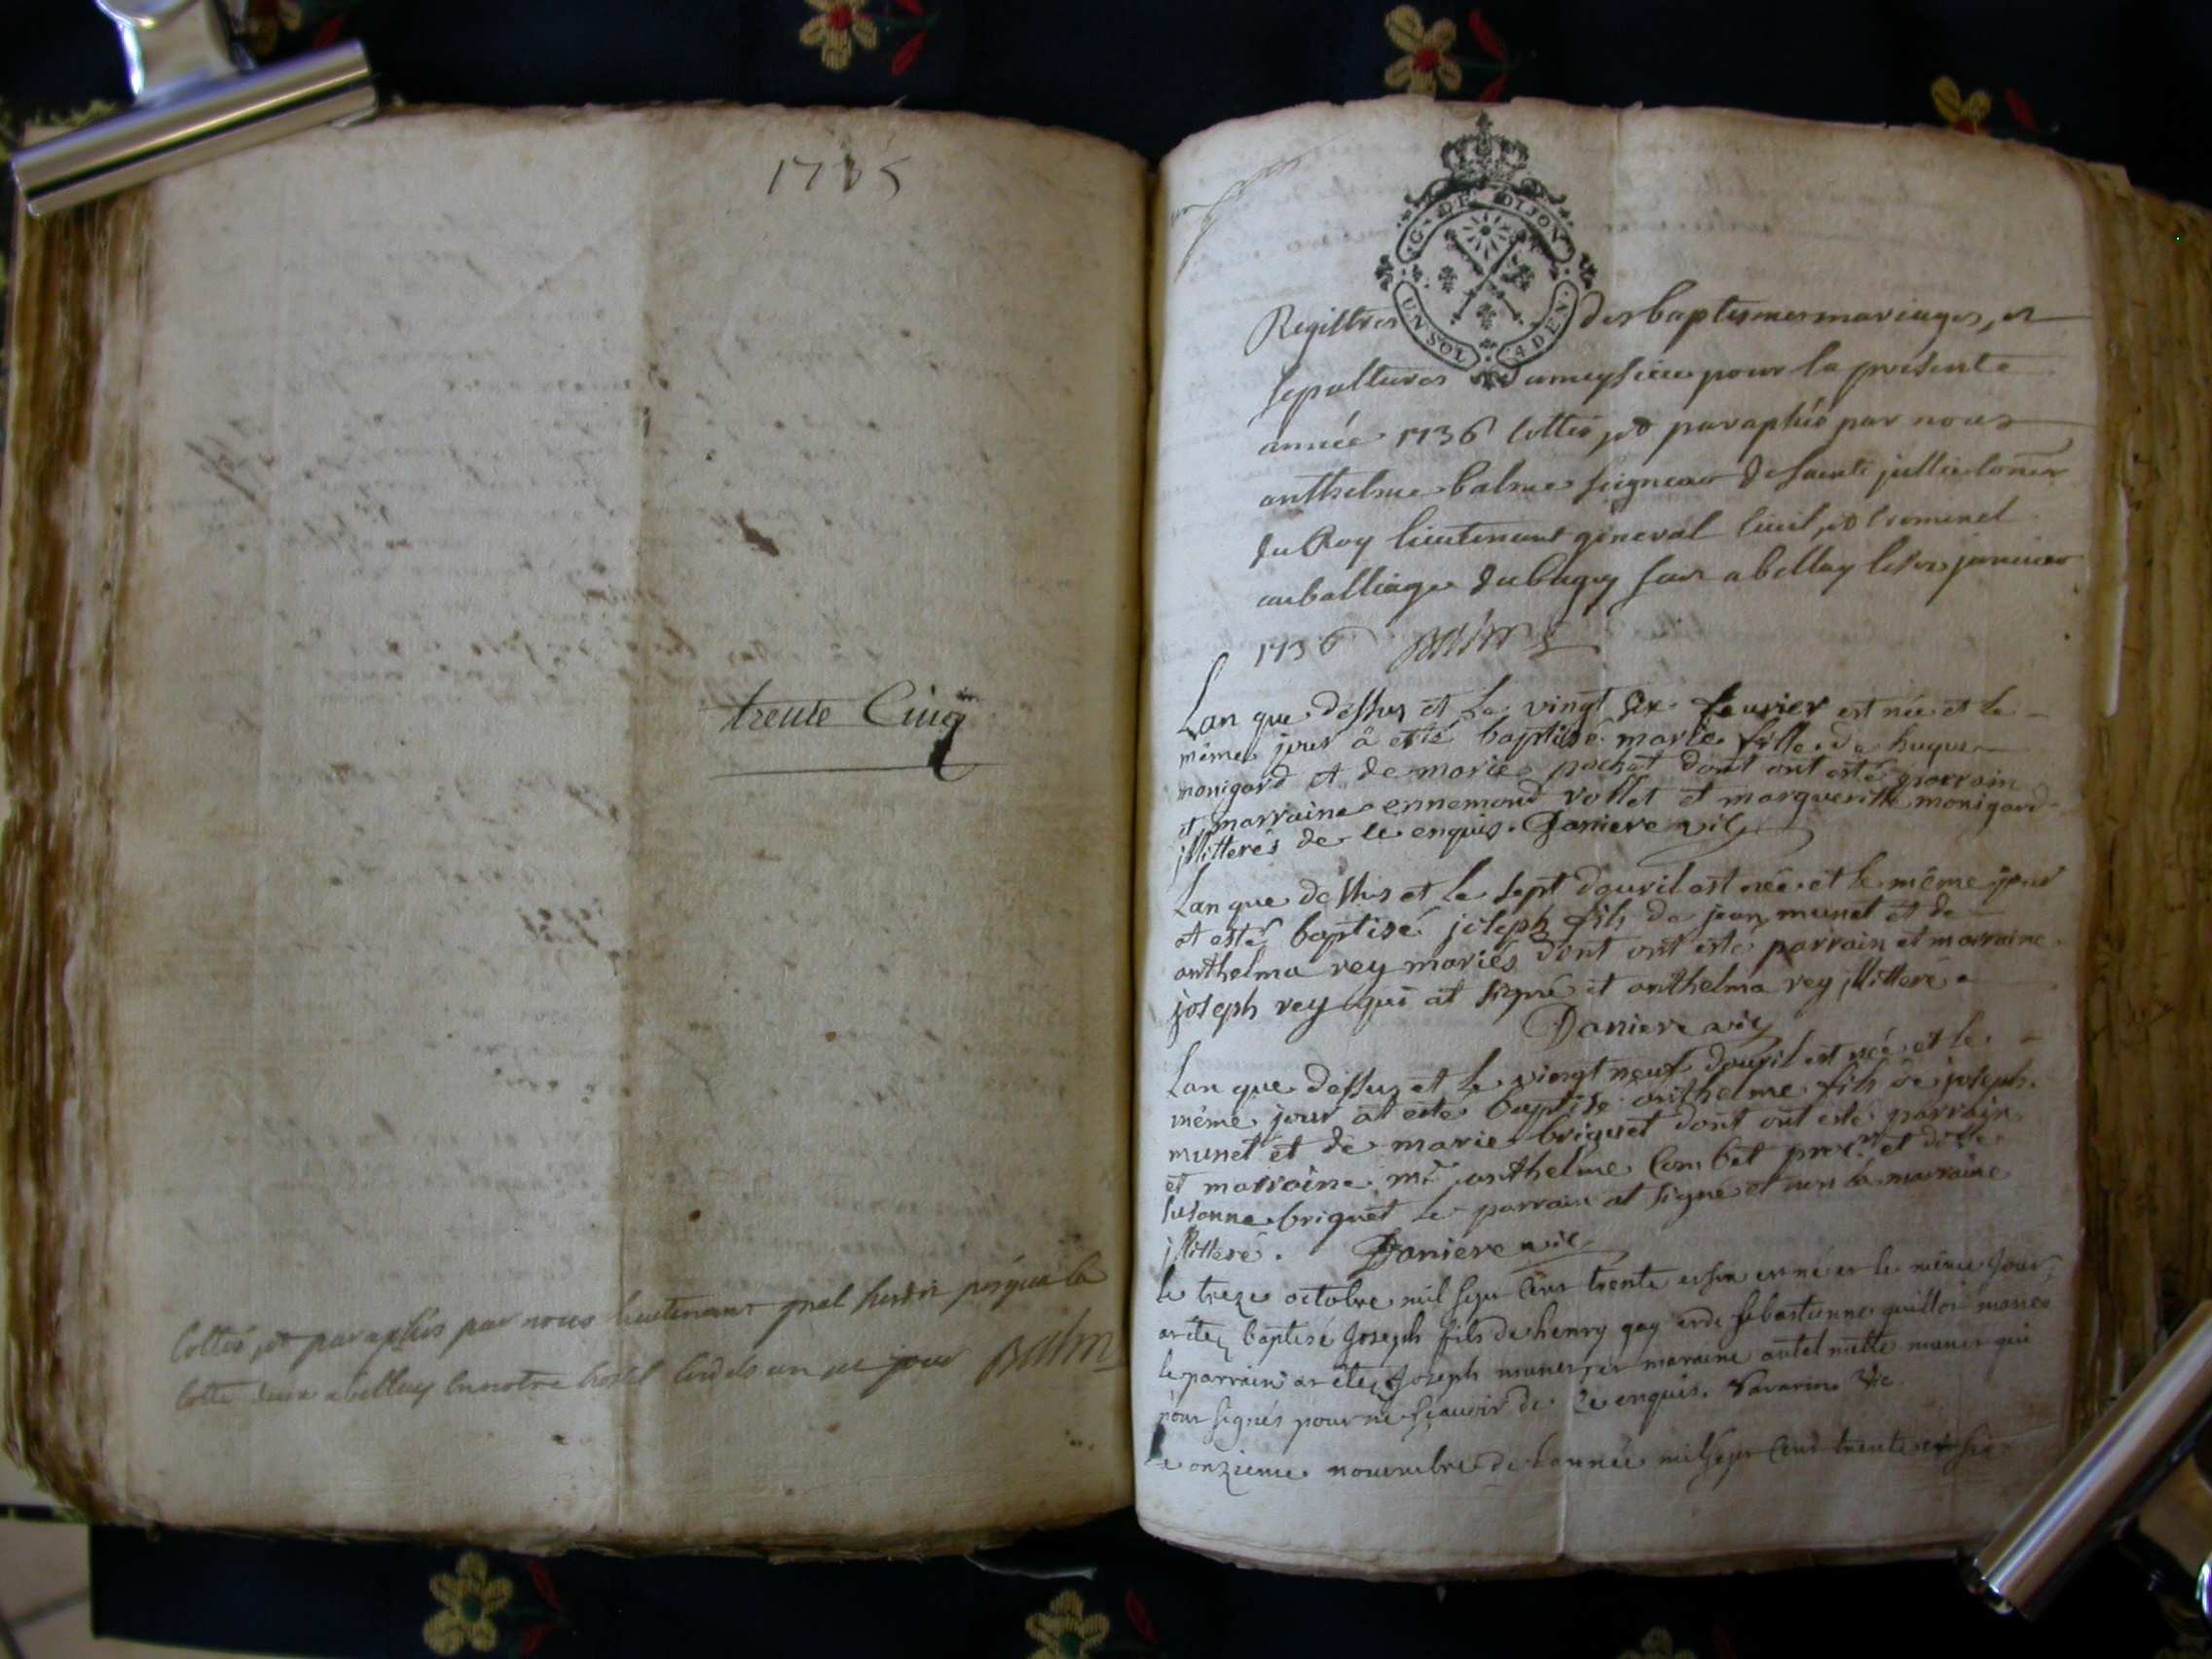 1735
trente Cinq
Cottés et paraphés par nous lieutenant gnal susdit jusqua la
Cotte deux a belley en notre hostel an et jour Balme
G. DE DIJON
UN SOL 4 DEN.
Registres des baptesmes mariages, et
sepultures pour la presente
année 1736 Cottés et paraphés par nous
anthelme balme seigneur de sainte jullie Coner
du Roy lieutenant general Civil, et Criminel
au balliage du bugey fait a belley le janvier
1736 Balme
Lan que dessus et le vingt six feuvier est née et le
même jour â esté baptisé marie fille de hugue
monigard et de marie pochet dont ont esté parrain
et marraine ennemond rollet et margueritte monigard
jllitterés de ce enquis. Daniere vic
Lan que dessus et le sept davril est née et le même jour
at esté baptisé joseph fils de jean munet et de
anthelma rey mariés dont ont esté parrain et marraine
joseph rey qui at signé et anthelma rey jllitteré
Daniere vic
Lan que dessus et le viengt neuf davril est née et le
même jour at esté baptisé anthelme fils de joseph
munet et de marie briguet dont ont esté parrain
et marraine mre anthelme Combet procr et dlle
susanne briguet le parrain at signé et non la marraine
jllitteré. Daniere vic
le treze octobre mil sept Cent trente et six est né et le même jour
at ete baptisé Joseph fils de henry gay et de sebastienne guillot mariés
le parrain at eté Joseph munet, et maraine mette munet qui
nont signés pour ne sçavoir de ce enquis. Vavarin Vic
Le onzieme novembre de lannée mil sept Cent trente et six